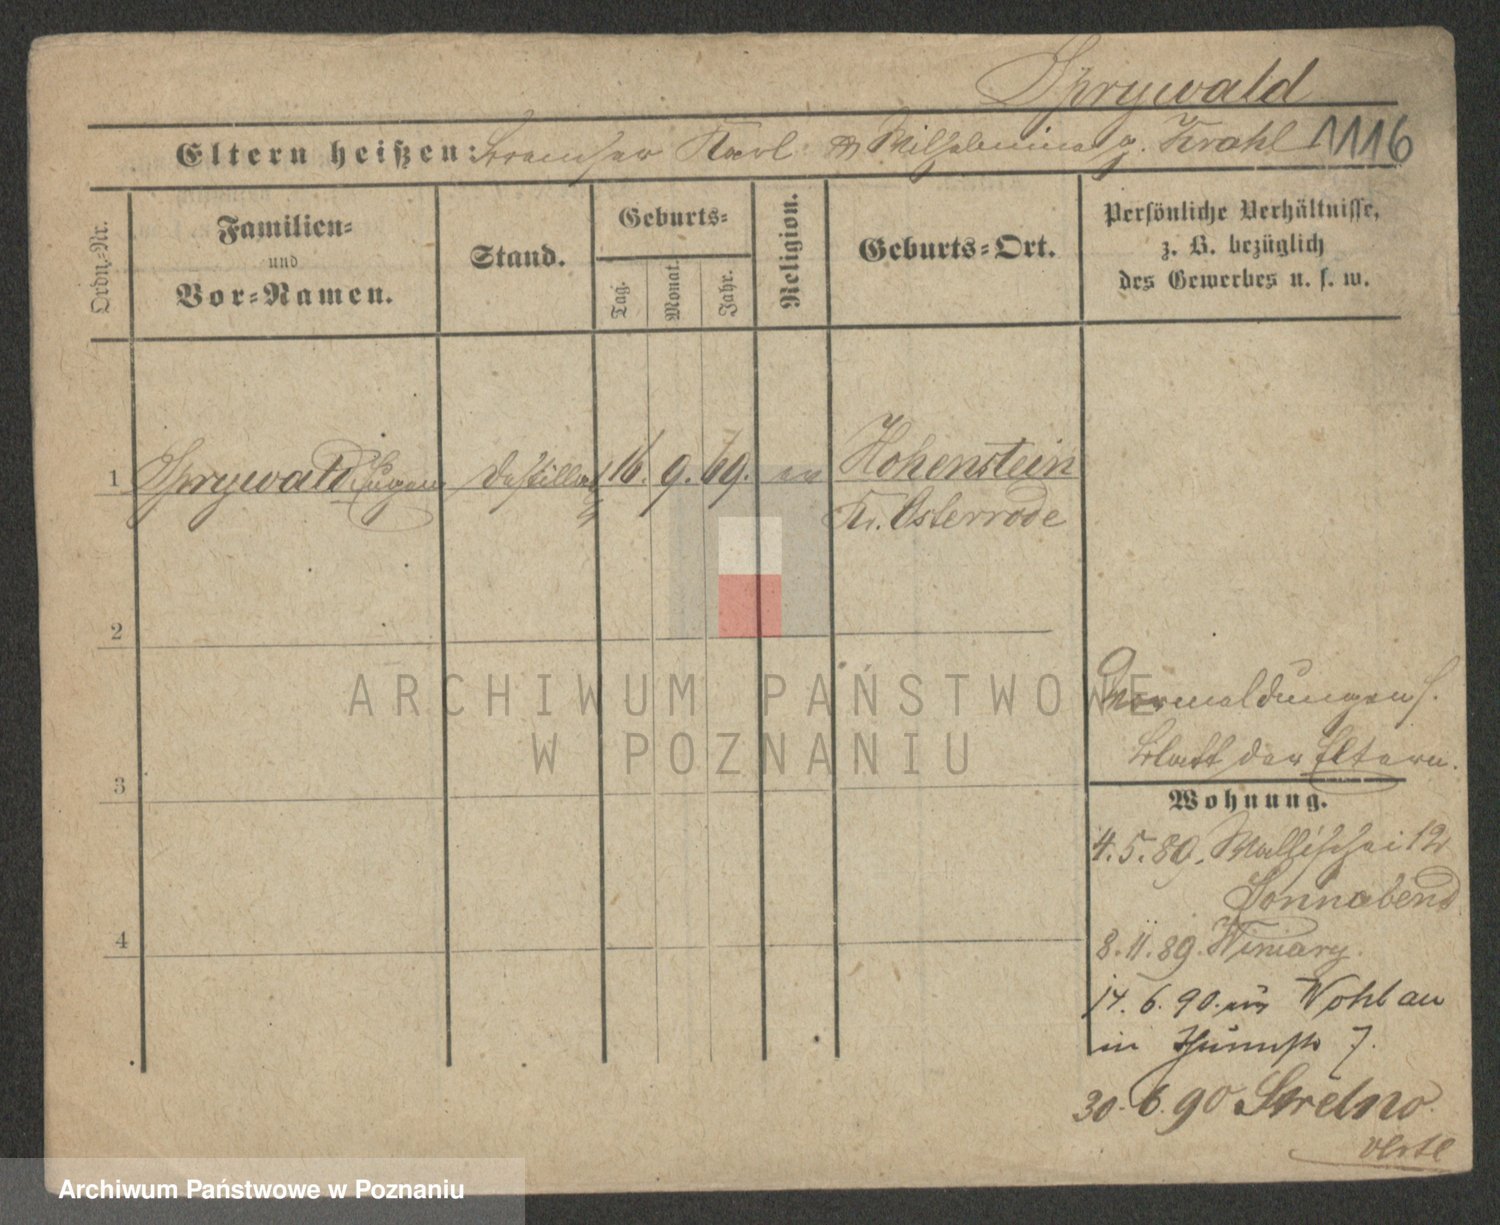 Sprywald
Eltern heißen: Karl Wilhelmine g. Krahl 1116
Ordn.-Nr.
Familien-
und
Vor-Namen.
Stand.
Geburts-
Tag.
Monat.
Jahr.
Religion.
Geburts-Ort.
Persönliche Verhältnisse,
z. B. bezüglich
des Gewerbes u. s. w.
1 Sprywald Eugen 16. 9. 69. ev Hohenstein
Kr. Osterrode
2
3
4
Blatt der Eltern.
Wohnung.
4.5.89. Wallischei 12
Sonnabend
8.11.89. Winiary.
14.6.90. aus Wohlau
in Thurmstr 7.
30.6.90 Strelno.
verte
ARCHIWUM PAŃSTWOWE
W POZNANIU
Archiwum Państwowe w Poznaniu